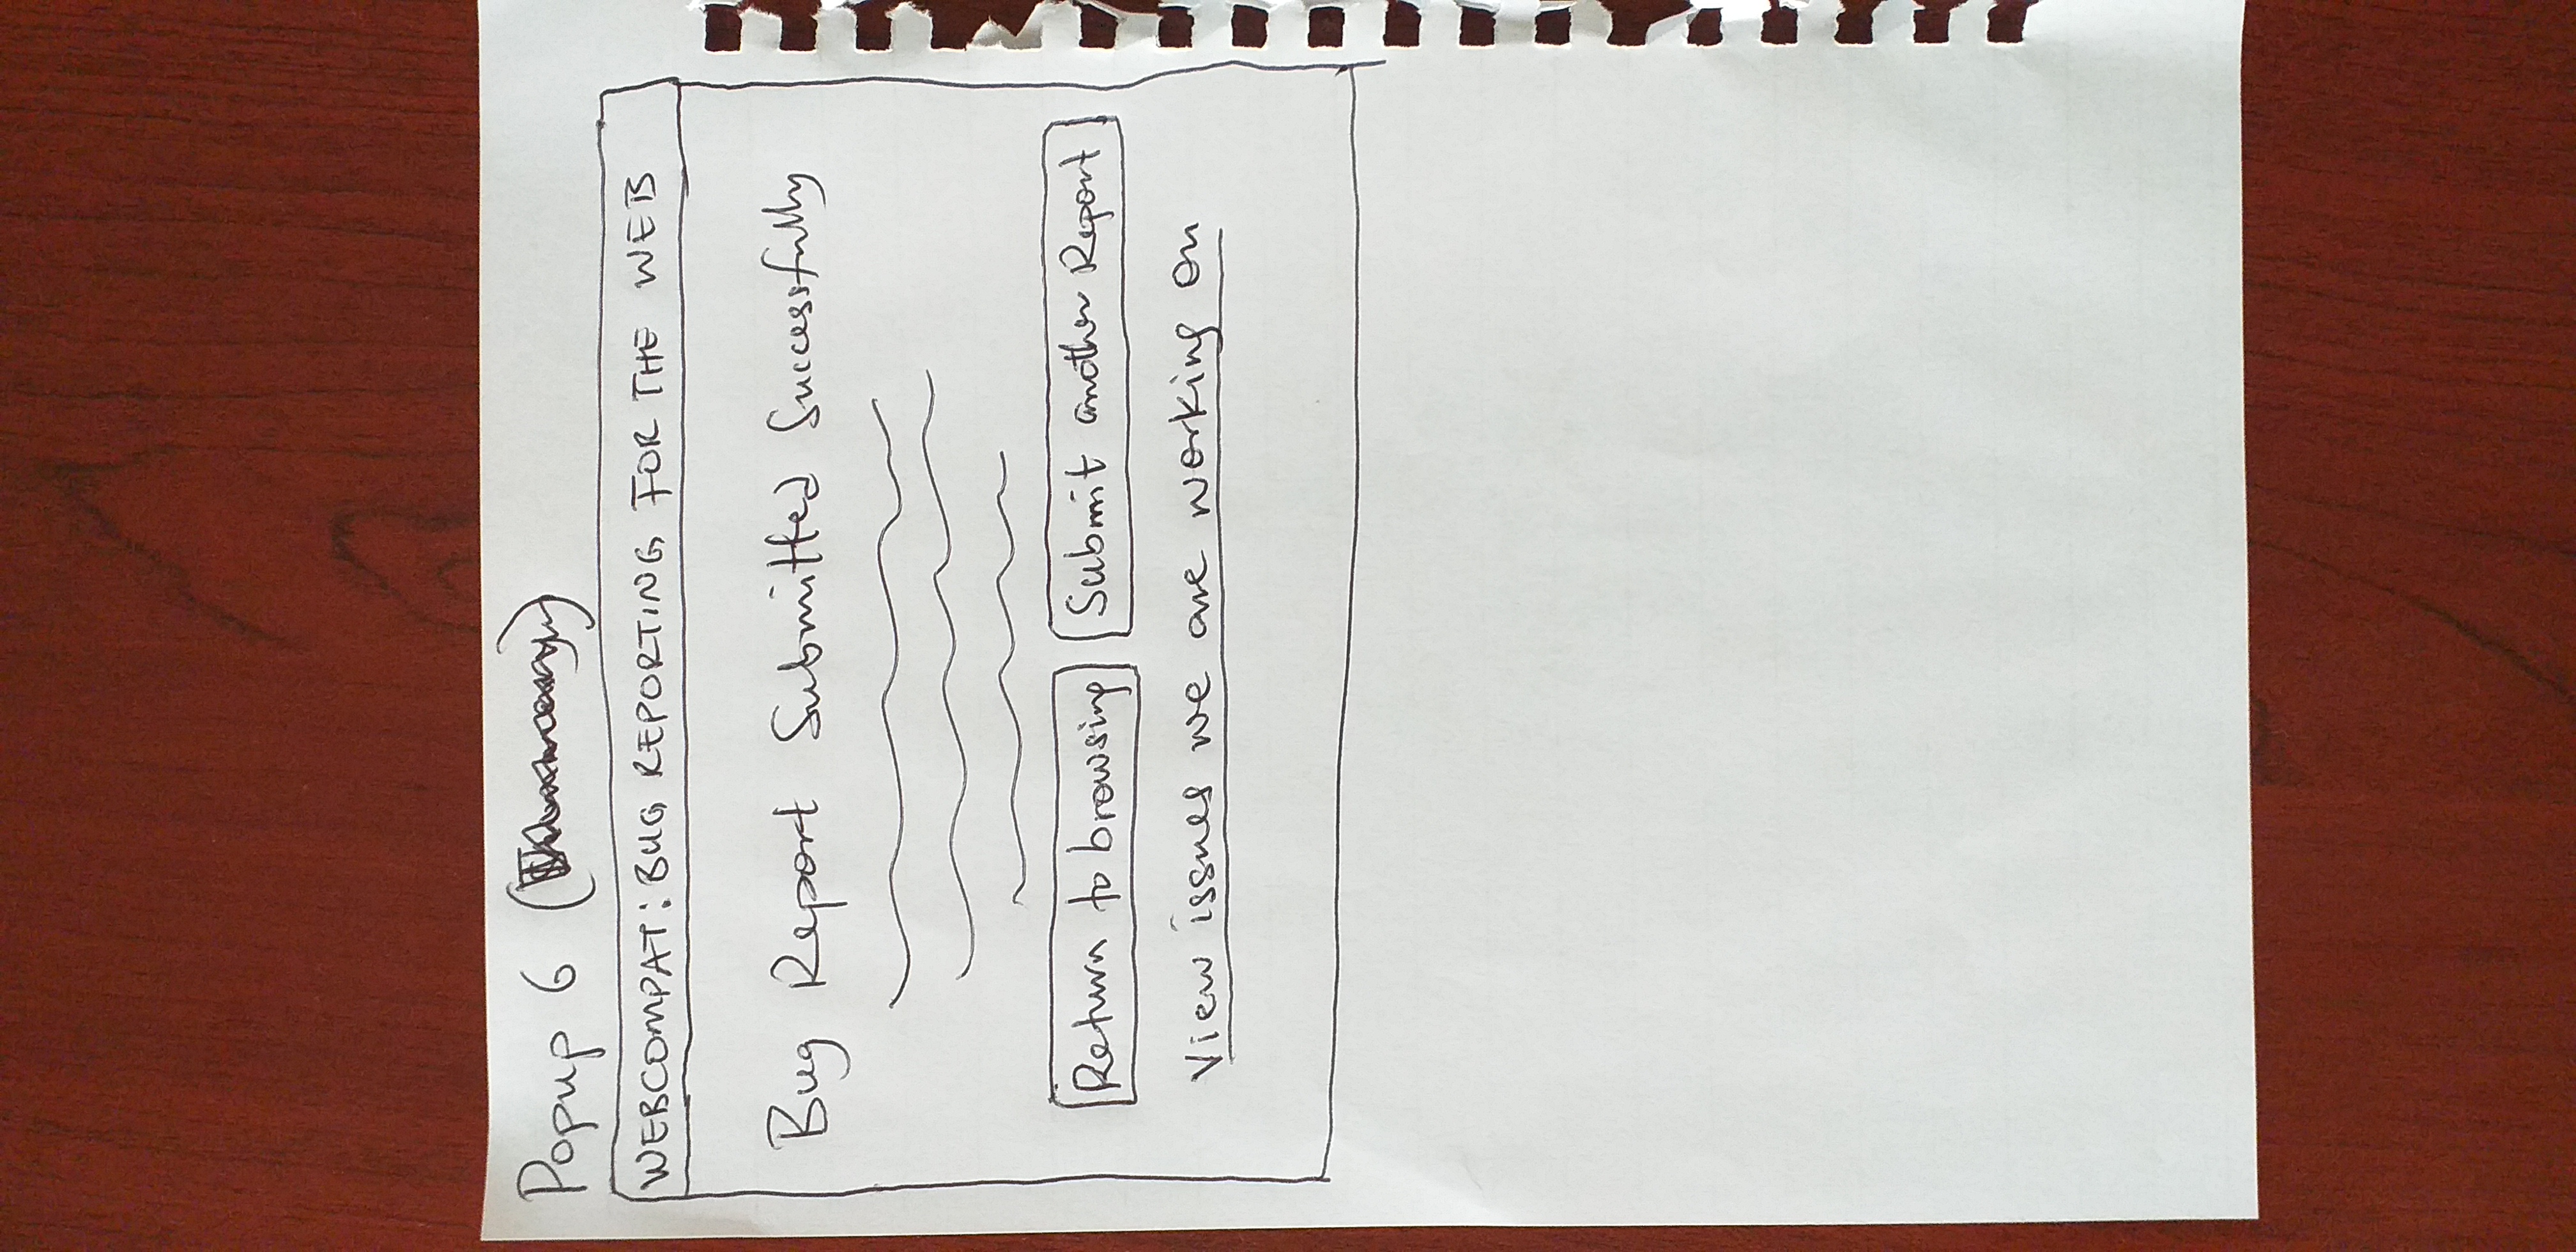 Popup 6
WEBCOMPAT: BUG REPORTING FOR THE WEB
Bug Report Submitted Successfully
Return to browsing
Submit another Report
View issues we are working on